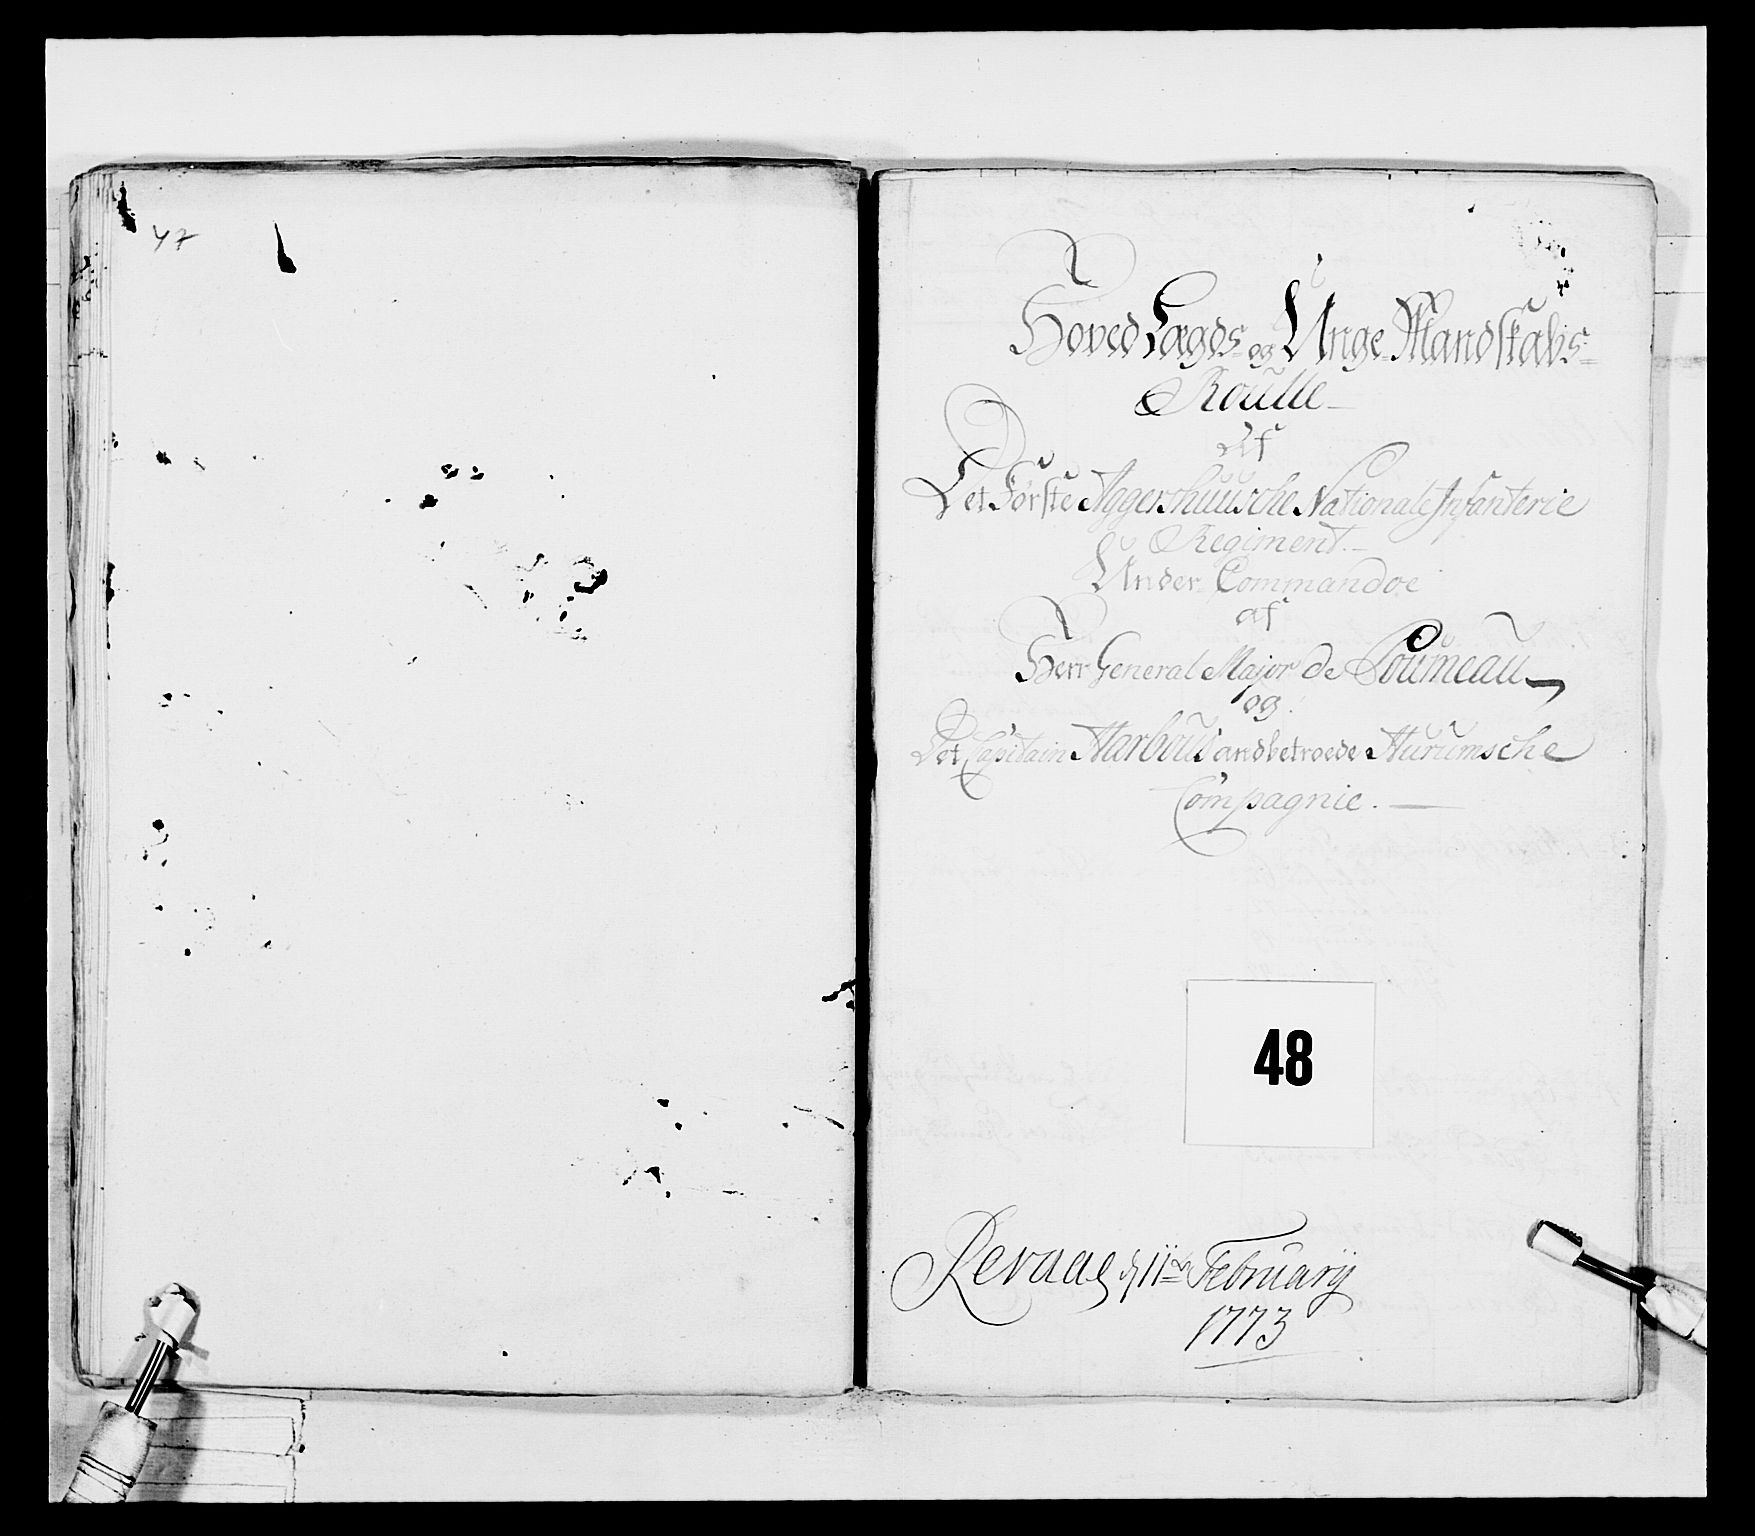 47
Hoved Lægds- og Unge-Mandskabs-
Roulle
Af
Det Første Aggershuusche Nationale Infanterie
Regiment.
Under Commandoe
af
Herr General Major de Coumeau
og
Det Capitain Harbou andbetroede Hurumsche
Compagnie.
48
Revaag d 11te Februarÿ
1773